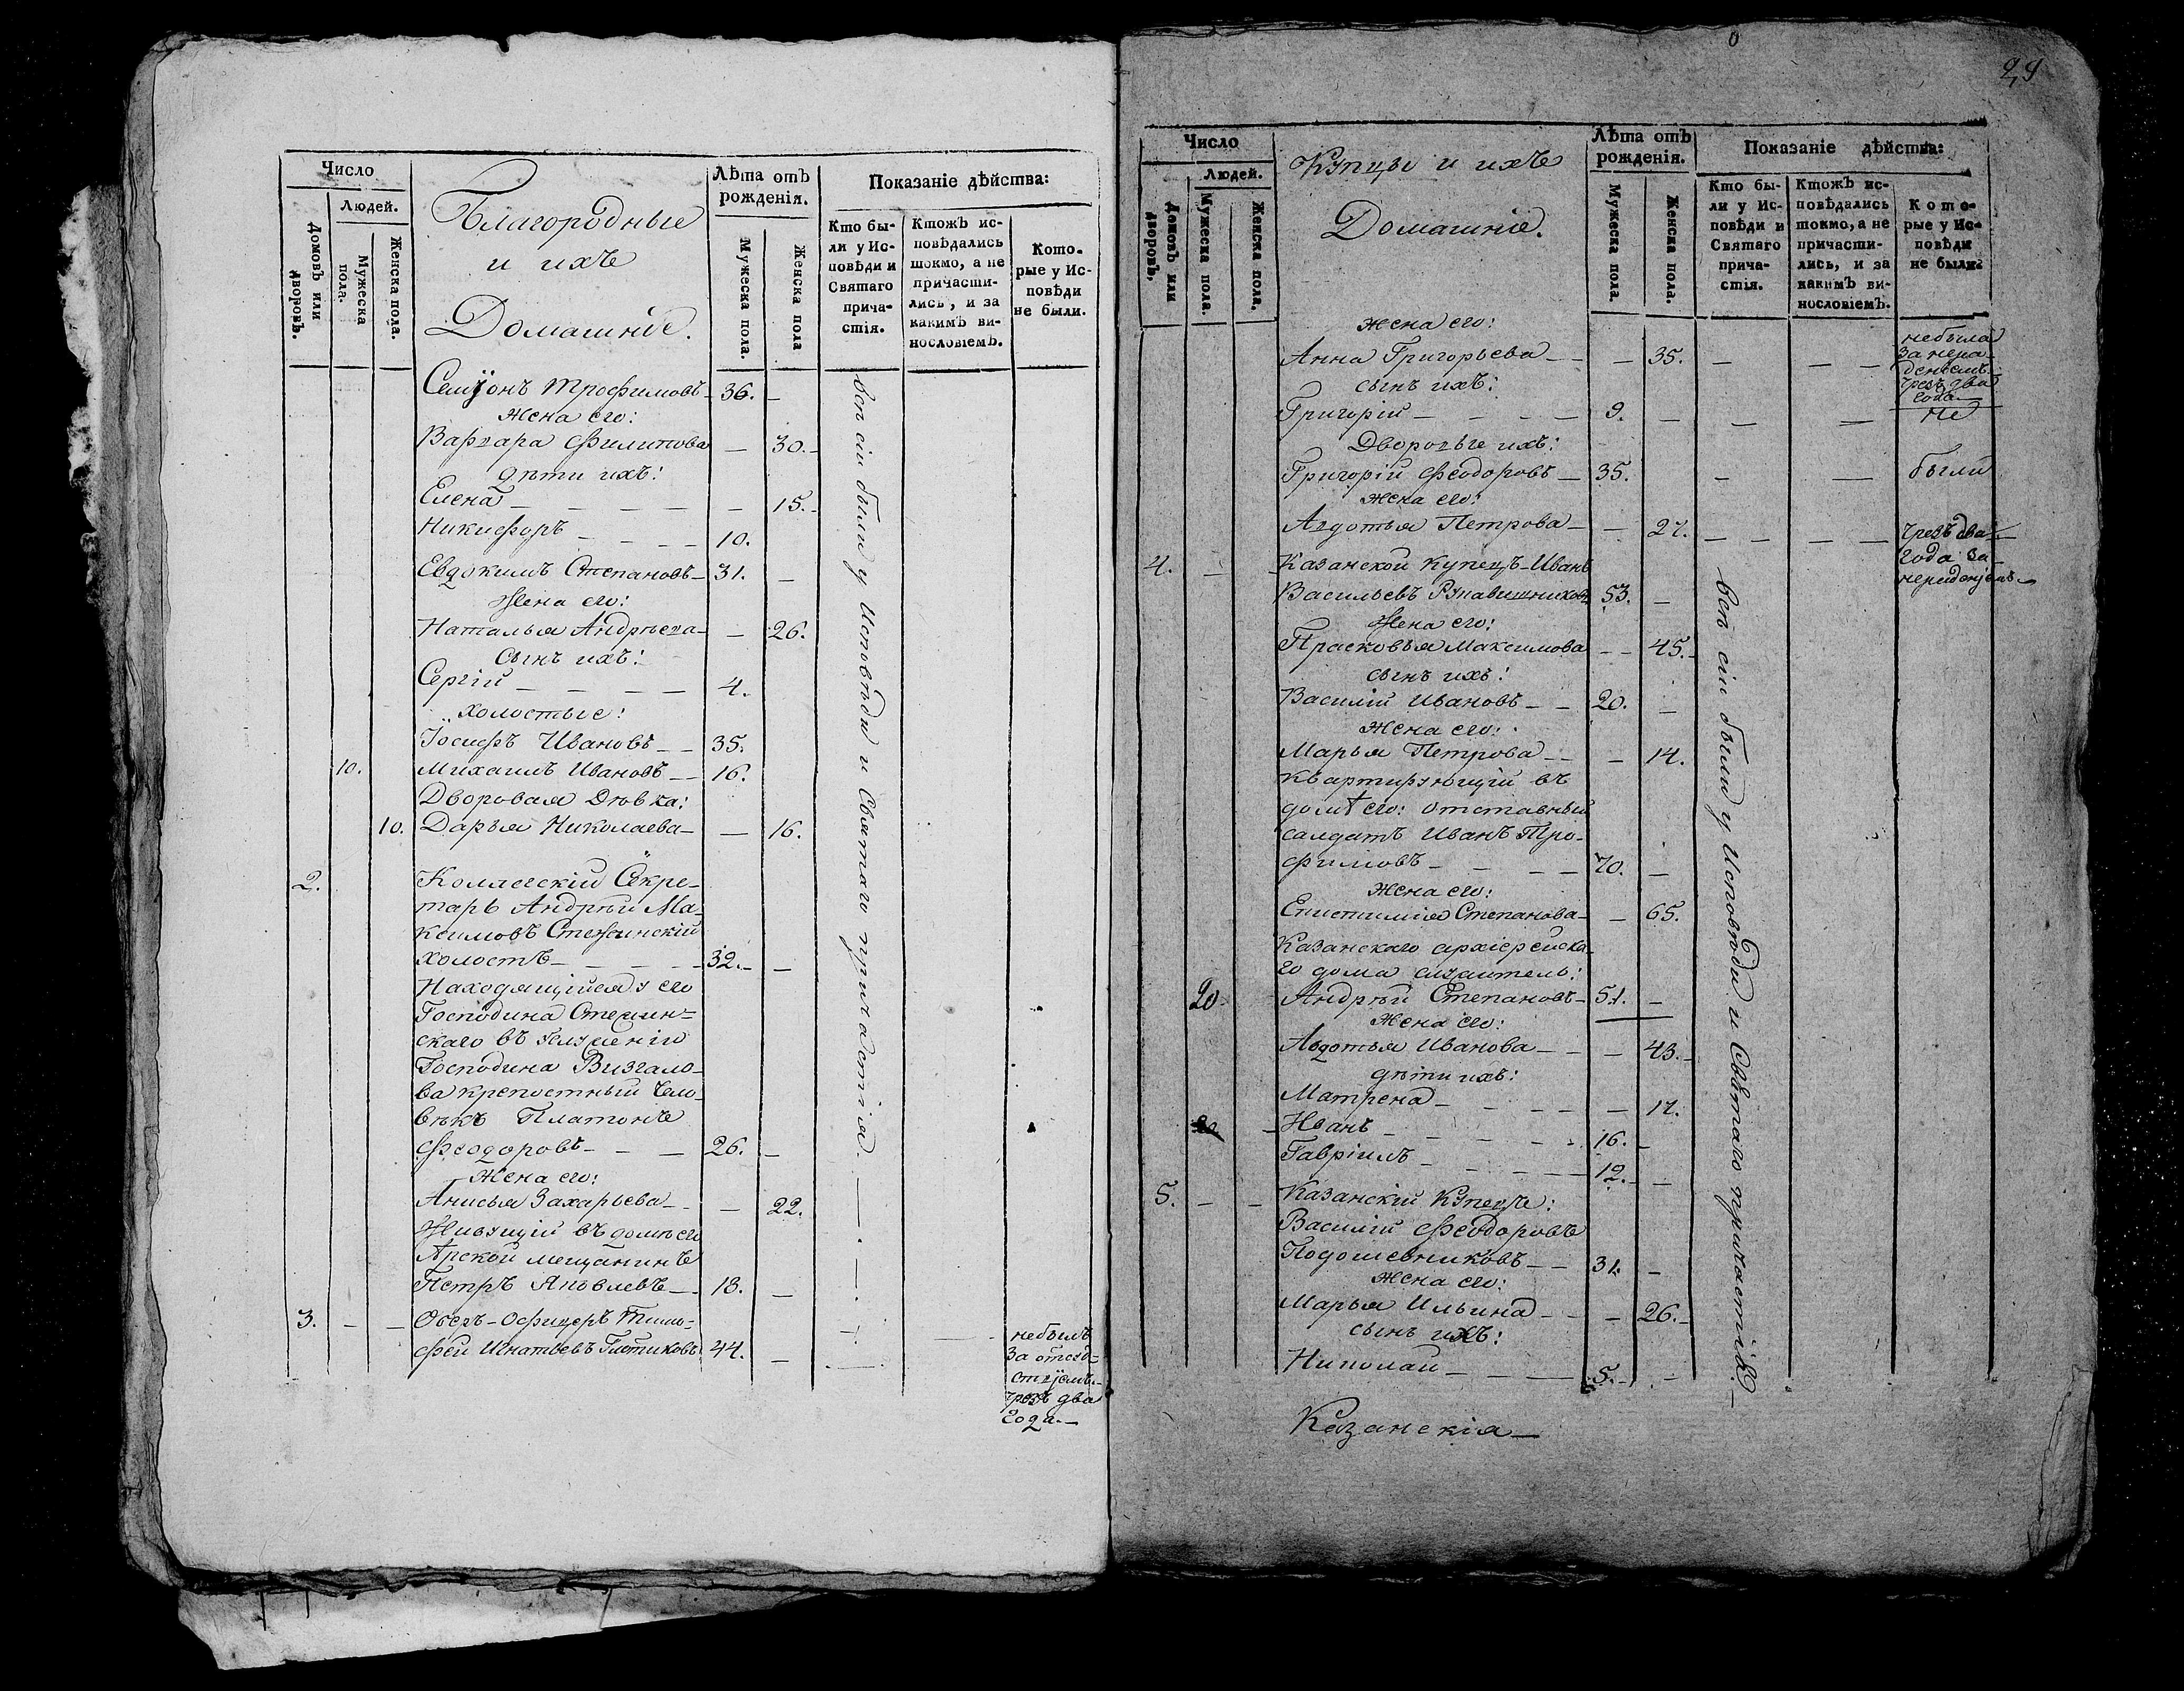 Число
Людей.
Домовъ или дворовъ.
Мужеска пола.
Женска пола.
Благородные
и ихъ
Домашніе.
Лѣта отъ
рожденія.
Мужеска пола.
Женска пола
Показаніе дѣйства:
Кто бы-
ли у Ис-
повѣди и
Святаго
прича-
стія.
Ктожъ ис-
повѣдались
токмо, а не
причасти-
лись, и за
какимъ ви-
нословіемъ.
Кото-
рые у Ис-
повѣди
не были.
Семіонъ Трофимовъ 36. —
Жена его:
Варвара Филипова — 30. —
дѣти ихъ:
Елена — — — — — 15. —
Никифоръ — — — — 10.
Евдокимъ Степановъ — 31. —
Жена его:
Наталья Андрѣева — — 26.
Сынъ ихъ:
Сергій — — — — 4.
Холостые:
Іосифъ Ивановъ — — 35.
10. Михаилъ Ивановъ — — 16.
Дворовая Дѣвка:
10. Дарья Николаева — — 16.
2. Коллегскій Секре-
тарь Андрѣй Ма-
ксимовъ
холостъ — — — — 32. — —
Находящійся у его
Господина
скаго въ услуженіи
Господина Визгало-
ва крепостный чело-
вѣкъ Платонъ
Феодоровъ — — — 26. —
Жена его:
Анисья Захарьева — — 22.
Живущій въ домѣ его
Арской мещанинъ
Петръ Яковлевъ — 18. —
3. — — Оберъ-Офицеръ Тимо-
фей Игнатьевъ 44. —
небылъ
За отсуд-
ствіемъ
чрезъ два
года. —
всѣ сіи были у Исповѣди и Святаго причастія
29
Число
Людей.
Домовъ или дворовъ,
Мужеска пола.
Женска пола.
Купцы и ихъ
Домашніе.
Лѣта отъ
рожденія.
Мужеска пола.
Женска пола.
Показаніе дѣйства:
Кто бы-
ли у Ис-
повѣди и
Святаго
прича-
стія.
Ктожъ ис-
повѣдались
токмо, а не
причасти-
лись, и за
какимъ ви-
нословіемъ.
Кото-
рые у Ис-
повѣди
не были.
жена его:
Анна Григорьева — — — 35. — — —
небыла
За нера-
деніемъ
чрезъ два
года
сынъ ихъ:
Григорій — — — — 9. — — — не
Дворовые ихъ:
Григорій Феодоровъ — 35. — — были
жена его:
Авдотья Петрова — — 27. — — — —
чрезъ два
года за
нерадѣніемъ —
4. — Казанской Купецъ Иванъ
Васильевъ Рукавишниковъ 53. —
Жена его:
Прасковья Максимова — — 45. —
сынъ ихъ:
Василій Ивановъ — — 20. —
Жена его:
Марья Петрова — — — 14.
Квартирующій въ
домѣ его: отставный
салдатъ Иванъ Тро-
фимовъ — — — — 70. —
Жена его:
Епистимія Степанова — — 65.
Казанскаго архіерейска-
го дома служитель:
20 Андрѣй Степановъ — 51. —
Жена его:
Авдотья Иванова — — — 43. —
дѣти ихъ:
Матрена — — — — — 17.
Иванъ — — — — 16. —
Гавріилъ — — — — 12. — —
5. — — Казанскій Купецъ:
Василій Феодоровъ
Подошевниковъ — — 31. —
Жена его:
Марья Ильина — — — 26. —
сынъ ихъ:
Николай — — — 5. — —
всѣ сіи были у Исповѣди и Святаго причастія. —
Казанскія —